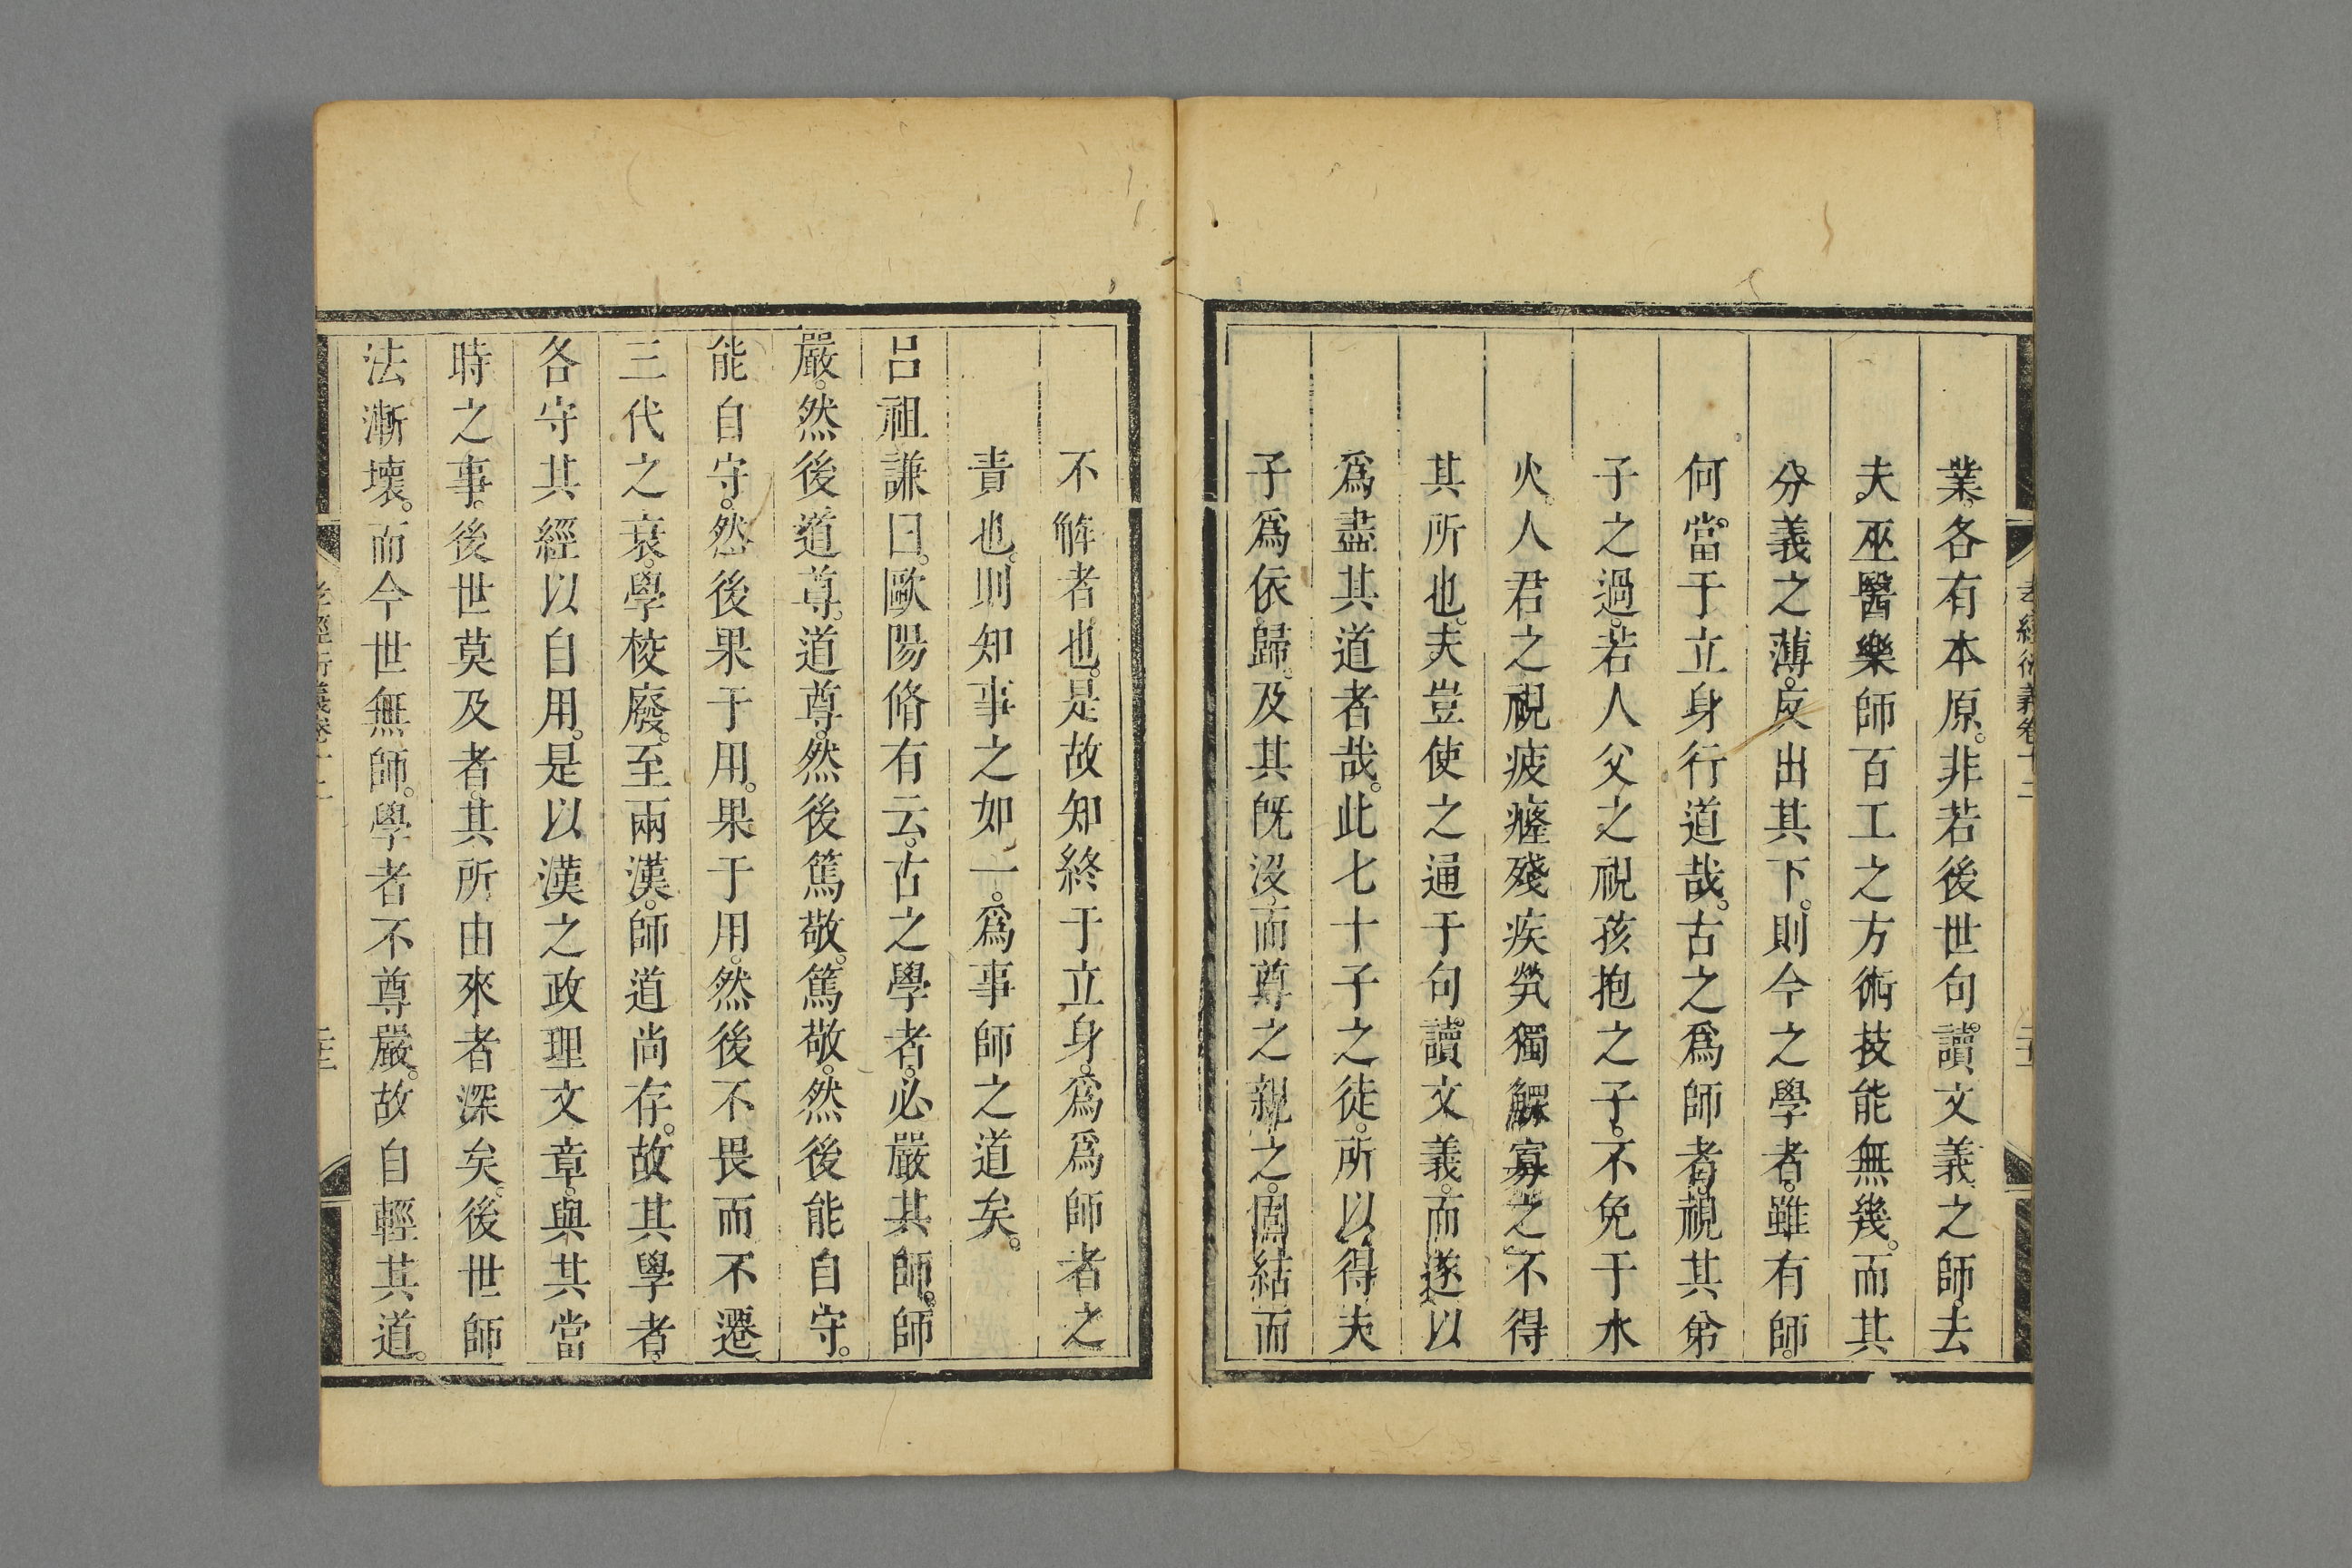 業各有本原。非若後世句讀文義之師去
夫。巫醫樂師百工之方術技能無幾。而其
分義之薄。反出其下。則今之學者。雖有師。
何當于立身行道哉。古之爲師者。視其弟
子之過。若人父之視孩抱之子。不免于水
火。人君之視疲癃殘疾煢獨鰥寡之不得
其所也。夫豈使之通于句讀文義。而遂以
爲盡其道者哉。此七十子之徒。所以得夫
子爲依歸。及其旣沒。而尊之親之。固結而
不解者也。是故知終于立身。爲爲師者之
責也。則知事之如一。爲事師之道矣。
呂祖謙曰。歐陽脩有云。古之學者。必嚴其師。師
嚴。然後道尊。道尊。然後篤敬。篤敬。然後能自守。
能自守。然後果于用。果于用。然後不畏而不遷。
三代之衰。學校廢。至兩漢。師道尚存。故其學者。
各守其經以自用。是以漢之政理文章。與其當
時之事。後世莫及者。其所由來者深矣。後世師
法漸壞。而今世無師。學者不尊嚴。故自輕其道。
孝經衍義卷十二